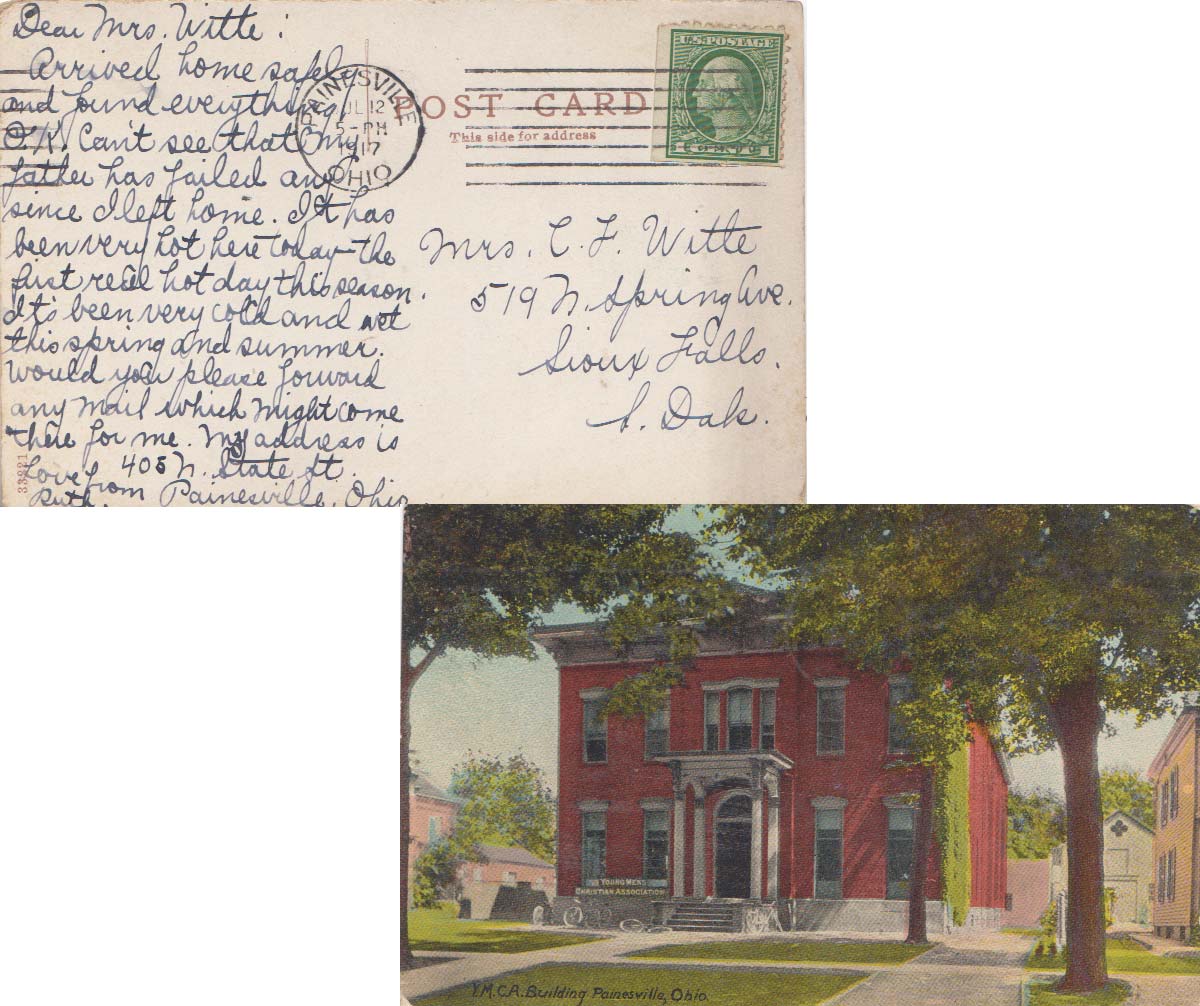 Dear Mrs. Witte:
Arrived home safely
and found everything
O.K. Can't see that my
father has failed any
since I left home. It has
been very hot here today - the
first real hot day this season.
It's been very cold and wet
this spring and summer.
Would you please forward
any mail which might come
there for me. My address is
405 N. State St.
Painesville, Ohio
Love from
Ruth.
33221
PAINESVILLE
JUL 12
5-PM
1917
OHIO
POST CARD
This side for address
U.S. POSTAGE
Mrs. C. F. Witte
519 N. Spring Ave.
Sioux Falls.
S. Dak.
YOUNG MENS
CHRISTIAN ASSOCIATION
Y.M.C.A. Building Painesville, Ohio.